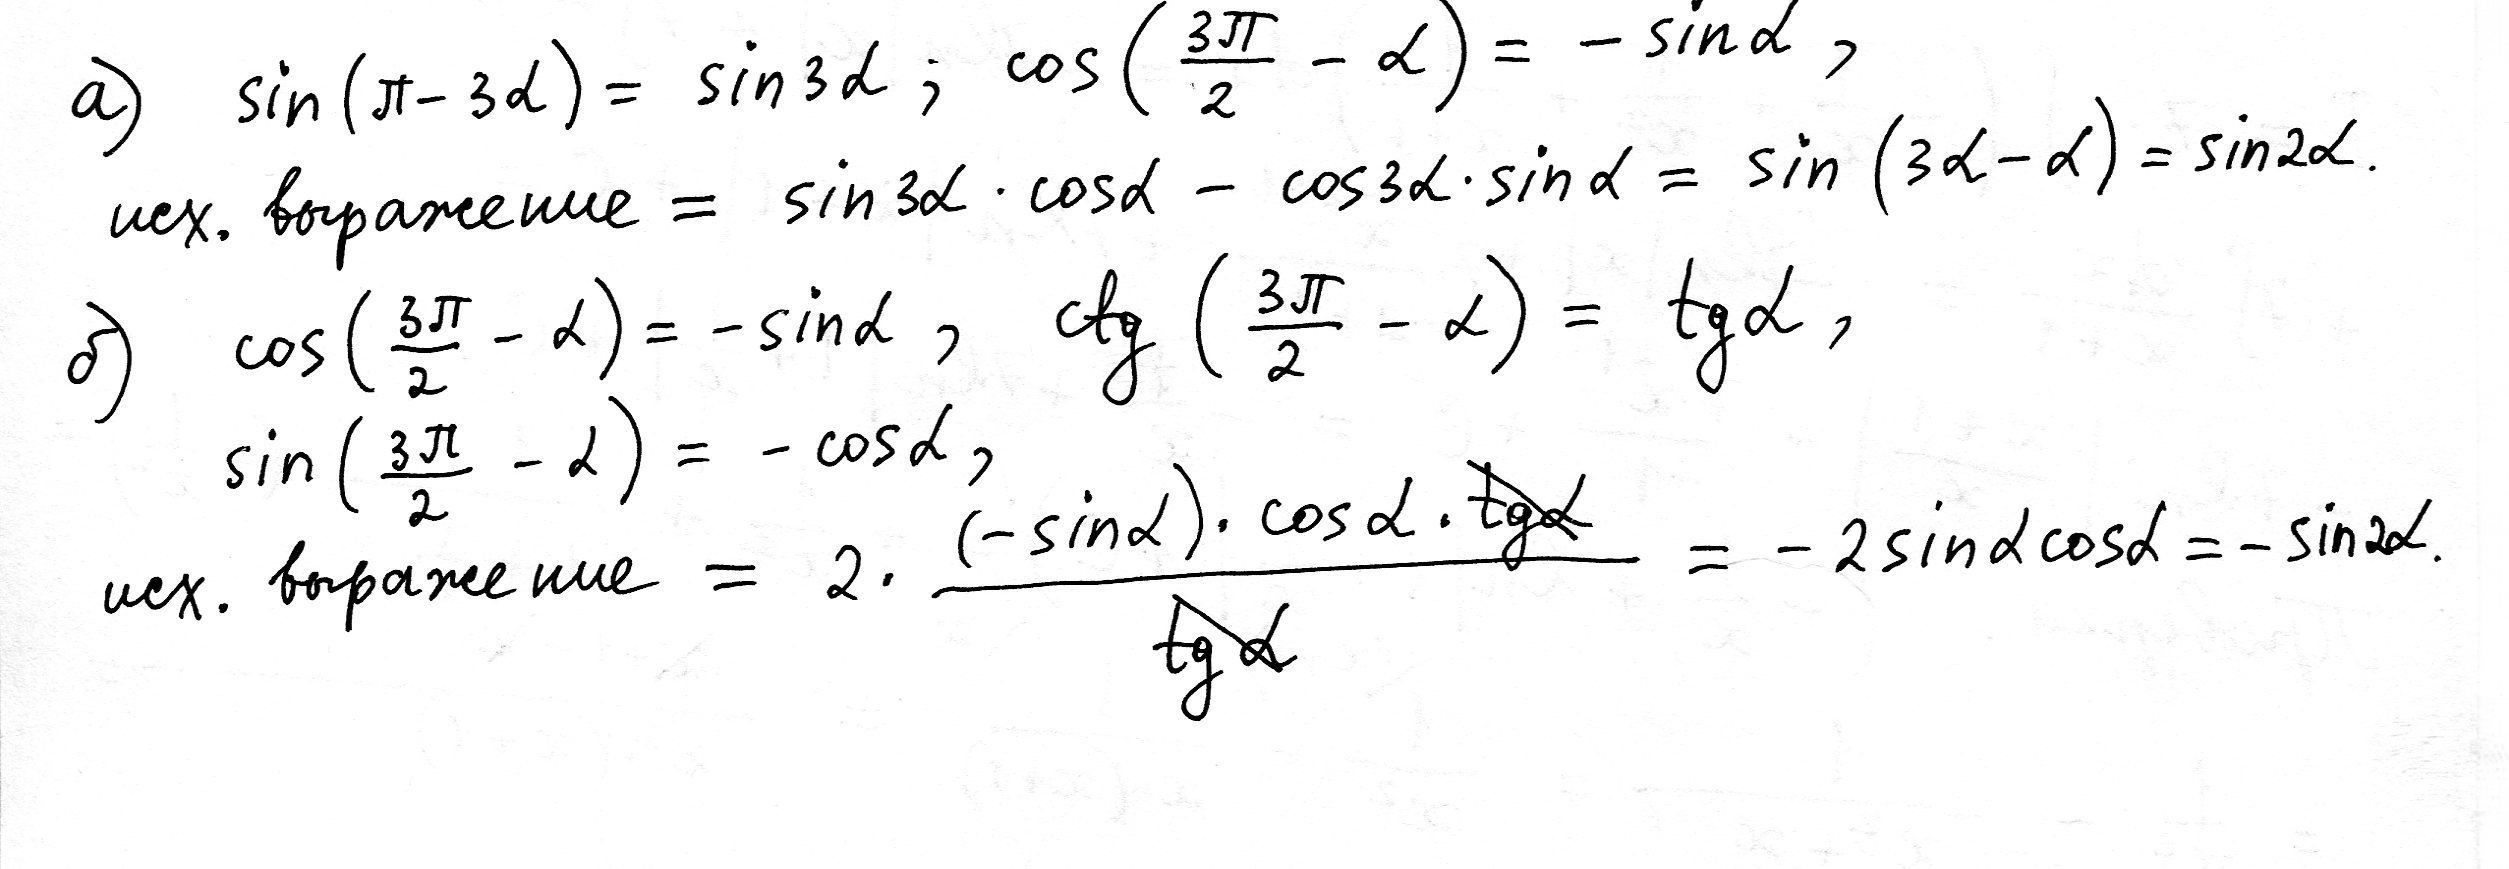 а) sin(π - 3α) = sin3α ; cos(3π/2 - α) = - sinα ,
исх. выражение = sin3α · cosα - cos3α · sinα = sin(3α - α) = sin2α.
б) cos(3π/2 - α) = - sinα , ctg(3π/2 - α) = tgα ,
sin(3π/2 - α) = - cosα ,
исх. выражение = 2 · (-sinα) · cosα · tgα / tgα = - 2sinα cosα = - sin2α.